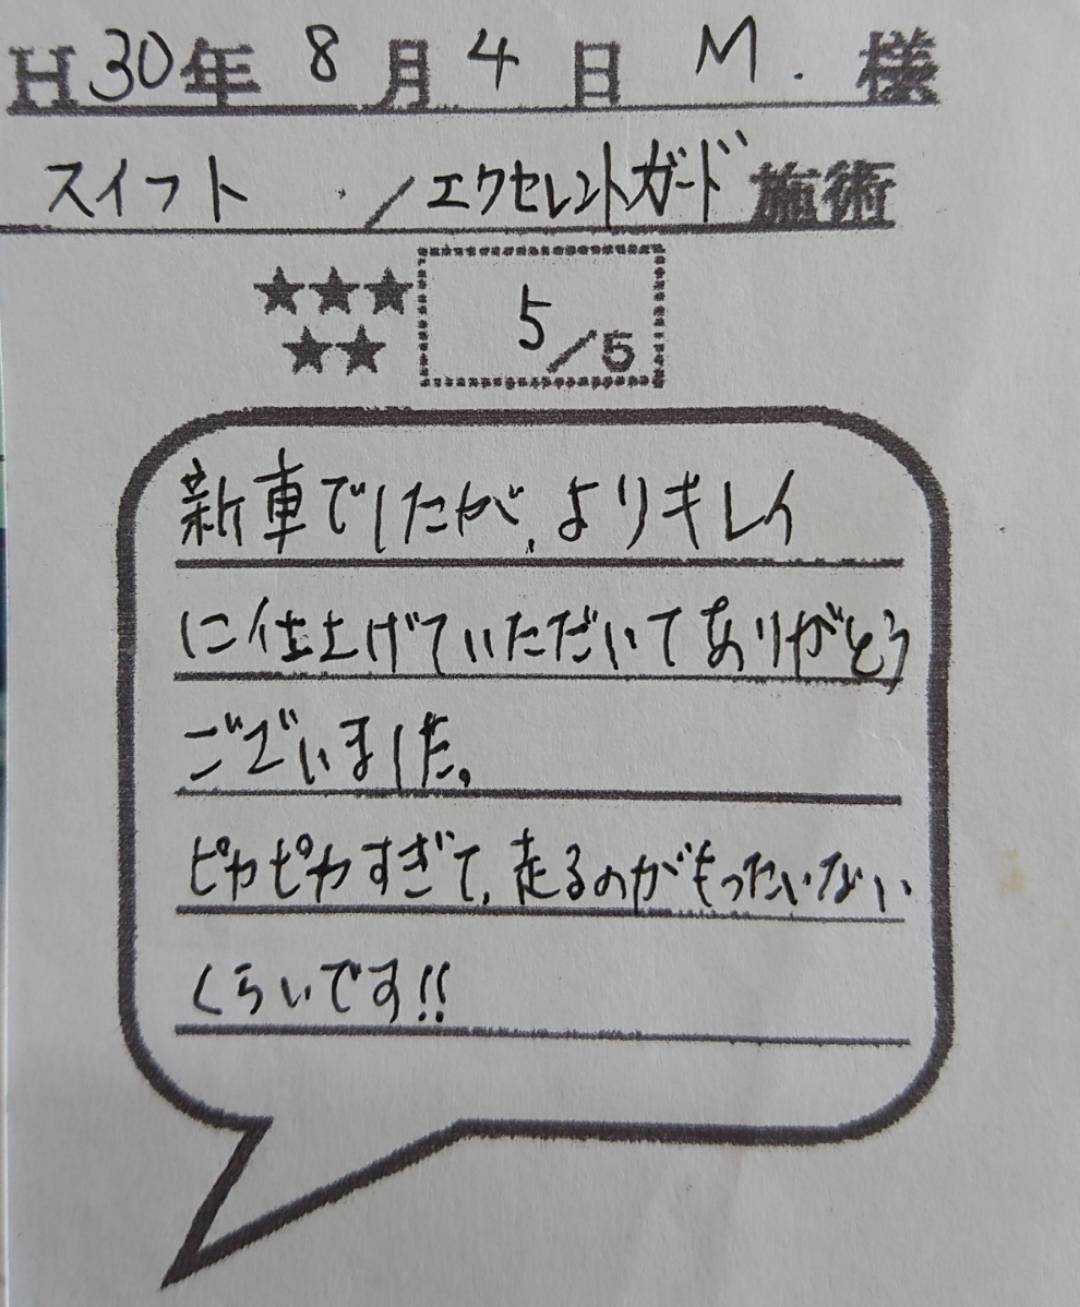 H30年 8月 4日 M. 様
スイフト ／エクセレントガード 施術
★★★
★★
5/5
新車でしたが、よりキレイ
に仕上げていただいてありがとう
ございました。
ピカピカすぎて、走るのがもったいない
くらいです!!